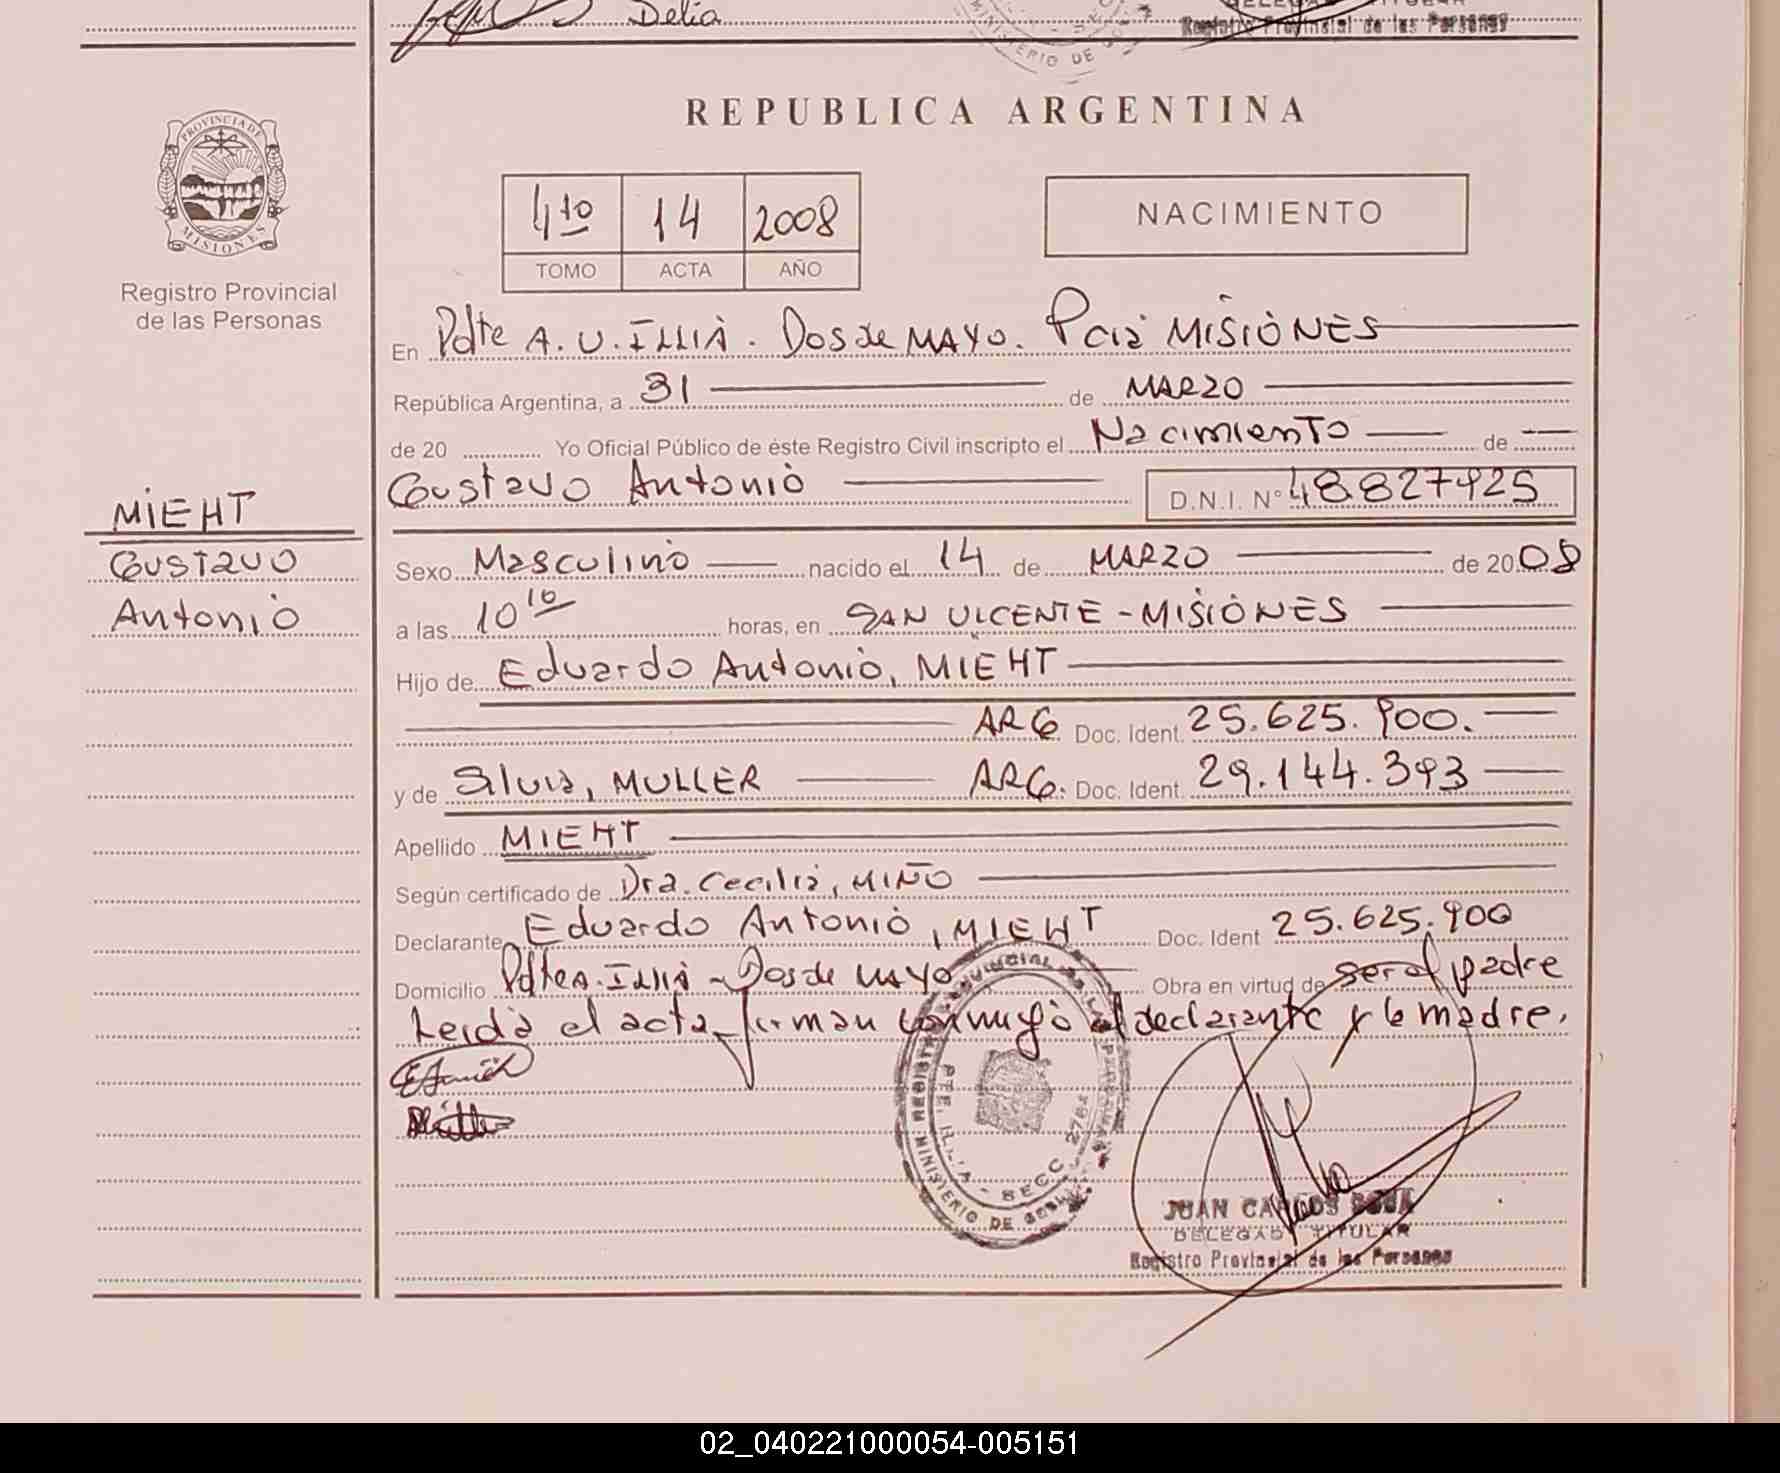 Delia
MINISTERIO DE GO
Registro Provincial de las Personas
REPUBLICA ARGENTINA
PROVINCIA DE
MISIONES
Registro Provincial
de las Personas
4to 14 2008
TOMO ACTA AÑO
NACIMIENTO
En Pdte A. U. ILLIA. Dos de MAYO. Pcia MISIONES
República Argentina, a 31 de MARZO
de 20 Yo Oficial Público de éste Registro Civil inscripto el Nacimiento de
Gustavo Antonio D.N.I. N° 48.827.925
MIEHT
Gustavo
Antonio
Sexo Masculino nacido el 14 de MARZO de 2008
a las 10 10 horas, en SAN VICENTE - MISIONES
Hijo de Eduardo Antonio, MIEHT
ARG Doc. Ident. 25.625.900.
y de Silvia, MULLER ARG. Doc. Ident. 29.144.393
Apellido MIEHT
Según certificado de Dra. Cecilia, MIÑO
Declarante Eduardo Antonio, MIEHT Doc. Ident 25.625.900
Domicilio Pdte A. ILLIA - Dos de MAYO Obra en virtud de ser el padre
Leida el acta firman conmigo el declarante y la madre.
JUAN CARLOS
DELEGADO TITULAR
Registro Provincial de las Personas
02_040221000054-005151